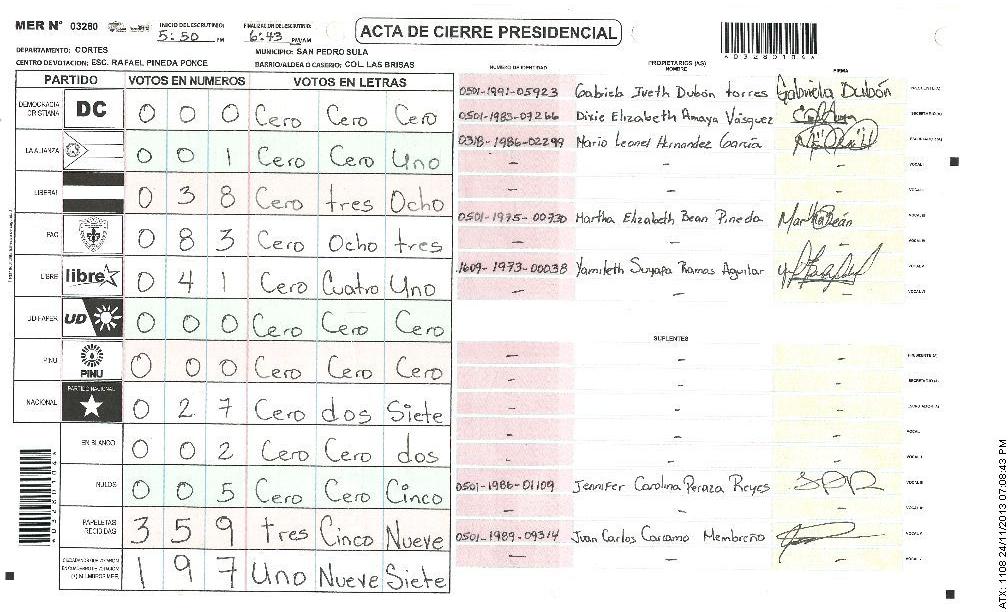 MER N° 03280
INICIO DEL ESCRUTINIO: 5:50 PM
FINALIZACION ESCRUTINIO: 6:43 PM/AM
ACTA DE CIERRE PRESIDENCIAL
A03280104A
DEPARTAMENTO: CORTES
MUNICIPIO: SAN PEDRO SULA
CENTRO DE VOTACION: ESC. RAFAEL PINEDA PONCE
BARRIO/ALDEA O CASERIO: COL. LAS BRISAS
PARTIDO VOTOS EN NUMEROS VOTOS EN LETRAS
DEMOCRACIA CRISTIANA DC 0 0 0 Cero Cero Cero
LA ALIANZA 0 0 1 Cero Cero Uno
LIBERAL 0 3 8 Cero tres Ocho
PAC 0 8 3 Cero Ocho tres
LIBRE libre 0 4 1 Cero Cuatro Uno
UD FAPER UD 0 0 0 Cero Cero Cero
PINU PINU 0 0 0 Cero Cero Cero
NACIONAL PARTIDO NACIONAL 0 2 7 Cero dos Siete
EN BLANCO 0 0 2 Cero Cero dos
NULOS 0 0 5 Cero Cero Cinco
PAPELETAS RECIBIDAS 3 5 9 tres Cinco Nueve
1 9 7 Uno Nueve Siete
NUMERO DE IDENTIDAD
PROPIETARIOS (AS)
NOMBRE
FIRMA
0501-1991-05923 Gabriela Iveth Dubón torres Gabriela Dubón
0501-1983-07266 Dixie Elizabeth Amaya Vásquez
0318-1986-02299 Mario Leonel Hernandez García
0501-1975-00730 Martha Elizabeth Bean Pineda Martha Beán
1609-1973-00038 Yamileth Suyapa Ramos Aguilar
SUPLENTES
0501-1986-01109 Jennifer Carolina Peraza Reyes
0501-1989-09314 Juan Carlos Carcamo Membreño
A03280104A
ATX: 1108 24/11/2013 07:08:43 PM